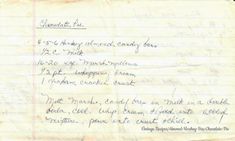 Chocolate Pie
4-5-6 Hershey almond candy bars
1/2 C milk
16-20 marshmallows
1/2 pt. whipping cream
1 graham cracker crust
Melt marsh., candy bars in milk in a double
boiler, cool. Whip cream, & fold into cooled
mixture. pour into crust & chill.
Vintage Recipes/Almond Hershey Bar Chocolate Pie